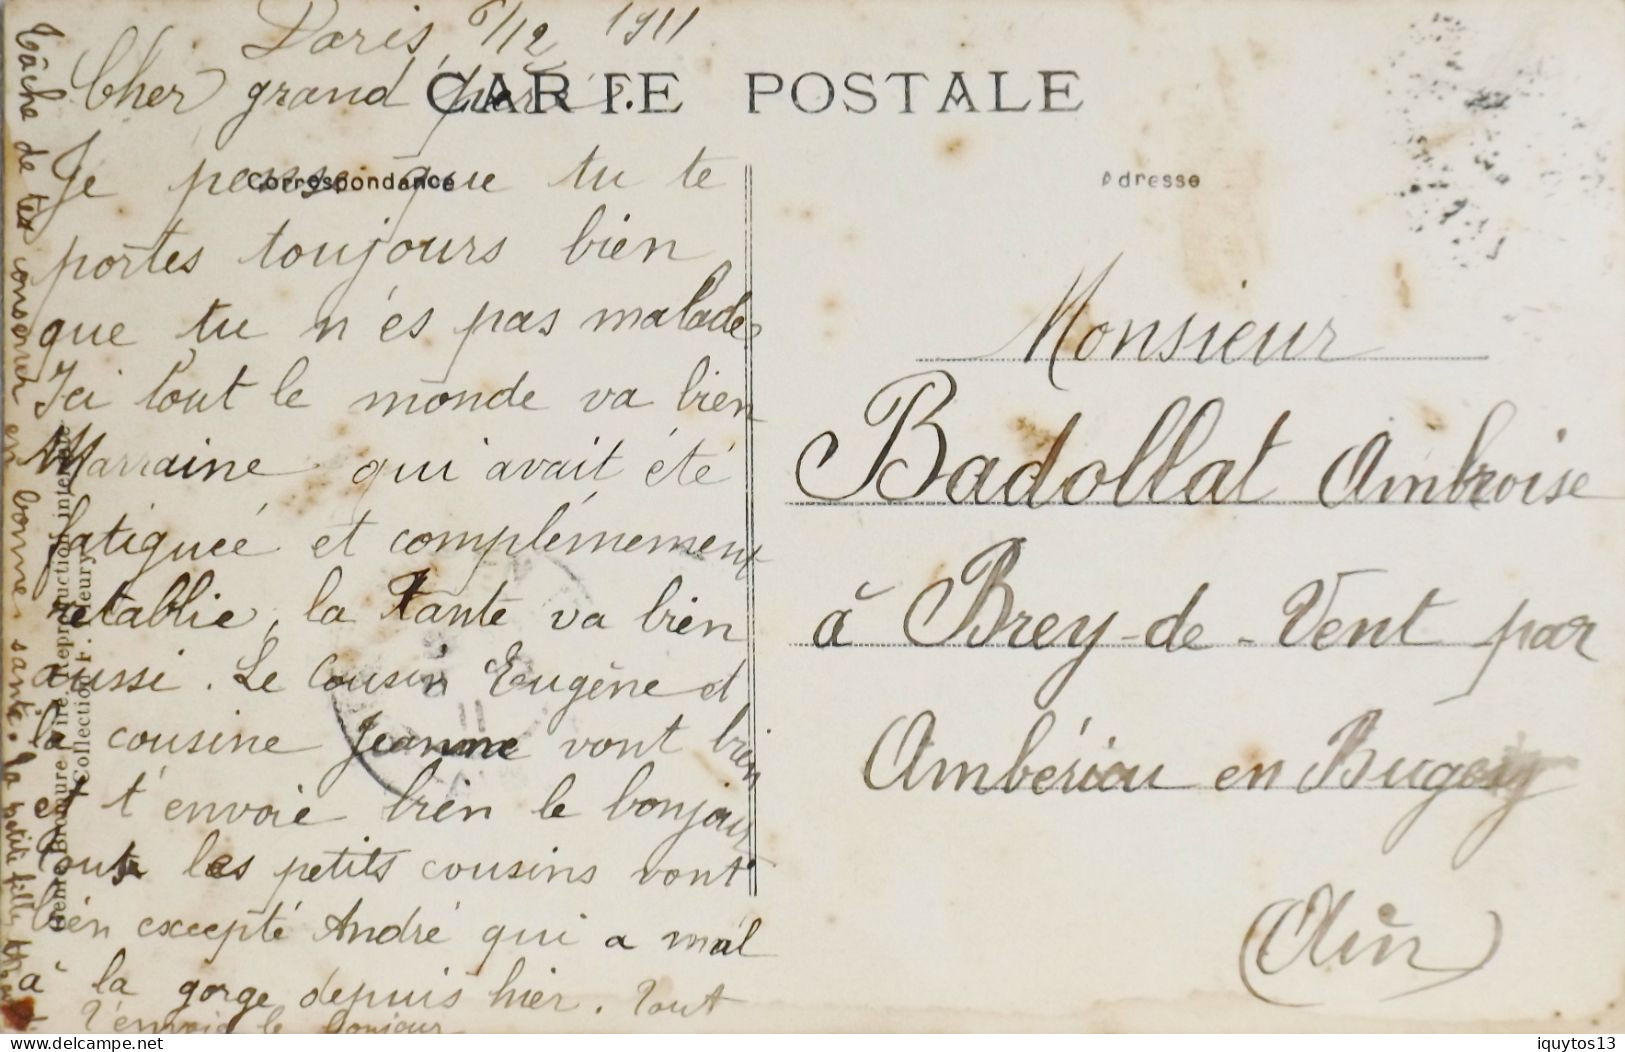 Paris 6/12 1911
CARTE POSTALE
Cher grand père.
Correspondance
Adresse
Je pense que tu te
portes toujours bien
que tu n'es pas malade
Ici tout le monde va bien
Marraine qui avait été
fatiguée et complémement
rétablie, la Tante va bien
aussi. Le Cousin Eugène et
la cousine Jeanne vont bien
et t'envoie bien le bonjour
Tous les petits cousins vont
bien excepté André qui a mal
à la gorge depuis hier. Tout
t'envoie le bonjour
Tâche de tes conserver en bonne santé. la petite fille
Reproduction interdite
Collection F. Fleury
Monsieur
Badollat Ambroise
à Brey-de-Vent par
Ambériou en Bugey
(Ain)
delcampe.net
iquytos13